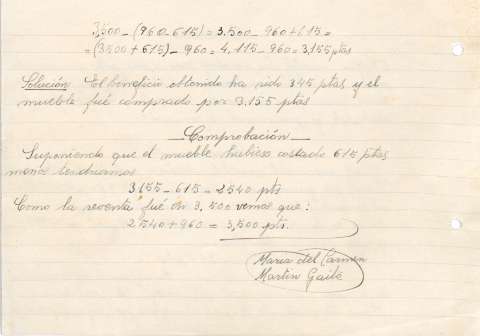 3,500 - (960 - 615) = 3.500 - 960 + 615 =
= (3500 + 615) - 960 = 4,115 - 960 = 3,155 ptas
Solución El beneficio obtenido ha sido 345 ptas y el
mueble fué comprado por 3,155 ptas
Comprobación
Suponiendo que el mueble hubiese costado 615 ptas
menos tendriamos
3,155 - 615 = 2540 pts.
Como la reventa fué de 3.500 vemos que:
2540 + 960 = 3,500 pts.
Maria del Carmen
Martin Gaite